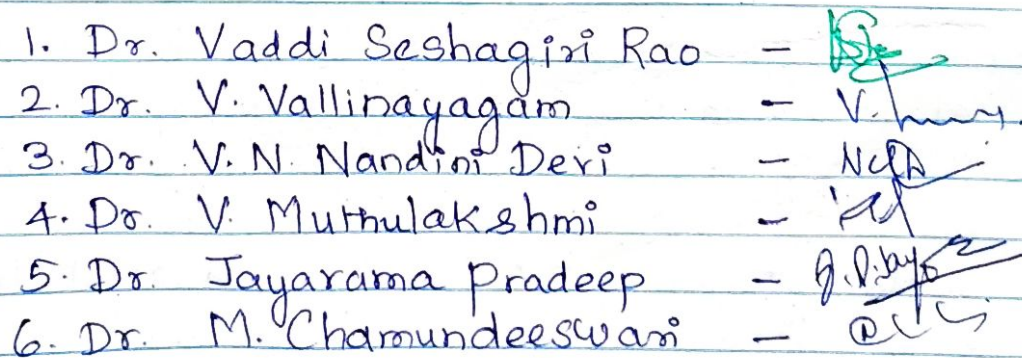 1. Dr. Vaddi Seshagiri Rao -
2. Dr. V. Vallinayagam -
3. Dr. V. N. Nandini Devi -
4. Dr. V. Muthulakshmi -
5. Dr. Jayarama Pradeep -
6. Dr. M. Chamundeeswari -